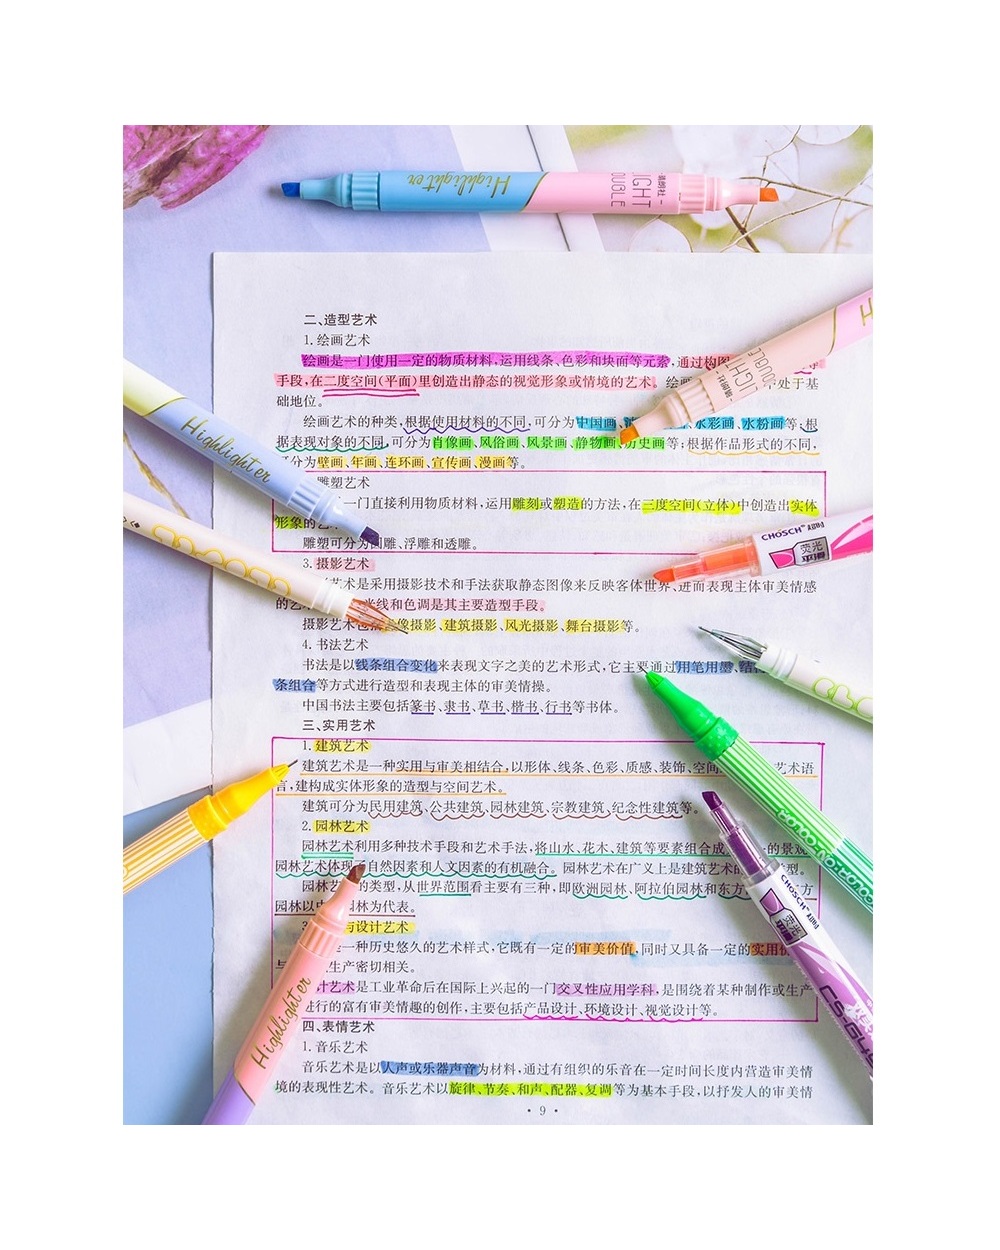 Highlighter
LIGHT
DOUBLE
二、造型艺术
1. 绘画艺术
绘画是一门使用一定的物质材料,运用线条、色彩和块面等元素,通过构图
手段,在二度空间(平面)里创造出静态的视觉形象或情境的艺术。绘画 处于基
础地位。
绘画艺术的种类,根据使用材料的不同,可分为中国画、 水彩画、水粉画等;根
据表现对象的不同,可分为肖像画、风俗画、风景画、静物画、历史画等;根据作品形式的不同,
分为壁画、年画、连环画、宣传画、漫画等。
雕塑艺术
一门直接利用物质材料,运用雕刻或塑造的方法,在三度空间(立体)中创造出实体
形象的艺
雕塑可分为圆雕、浮雕和透雕。
3. 摄影艺术
艺术是采用摄影技术和手法获取静态图像来反映客体世界、进而表现主体审美情感
的艺 光线和色调是其主要造型手段。
摄影艺术 像摄影、建筑摄影、风光摄影、舞台摄影等。
4. 书法艺术
书法是以线条组合变化来表现文字之美的艺术形式,它主要通过用笔用墨、结
条组合等方式进行造型和表现主体的审美情操。
中国书法主要包括篆书、隶书、草书、楷书、行书等书体。
三、实用艺术
1. 建筑艺术
建筑艺术是一种实用与审美相结合,以形体、线条、色彩、质感、装饰、空间 艺术语
言,建构成实体形象的造型与空间艺术。
建筑可分为民用建筑、公共建筑、园林建筑、宗教建筑、纪念性建筑等。
2. 园林艺术
园林艺术利用多种技术手段和艺术手法,将山水、花木、建筑等要素组合成 的景观
园林艺术体现 自然因素和人文因素的有机融合。园林艺术在广义上是建筑艺术的 型。
园林艺 的类型,从世界范围看主要有三种,即欧洲园林、阿拉伯园林和东方 方
园林以中 园林为代表。
3. 与设计艺术
一种历史悠久的艺术样式,它既有一定的审美价值,同时又具备一定的实用价
与 生产密切相关。
计艺术是工业革命后在国际上兴起的一门交叉性应用学科,是围绕着某种制作或生产
进行的富有审美情趣的创作,主要包括产品设计、环境设计、视觉设计等。
四、表情艺术
1. 音乐艺术
音乐艺术是以人声或乐器声音为材料,通过有组织的乐音在一定时间长度内营造审美情
境的表现性艺术。音乐艺术以旋律、节奏、和声、配器、复调等为基本手段,以抒发人的审美情
· 9 ·
Highlighter
LIGHT
DOUBLE
CHOSCH
荧光
CHOSCH
荧光
Highlighter